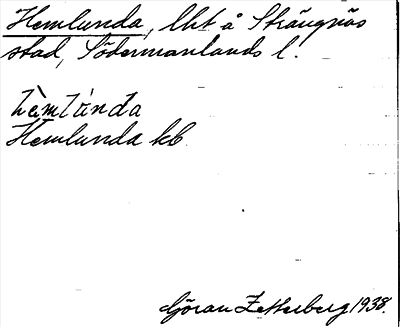 Hemlunda, lht å Strängnäs
stad, Södermanlands l.
hèmlúnda
Hemlunda kb
Göran Zetterberg 1938.